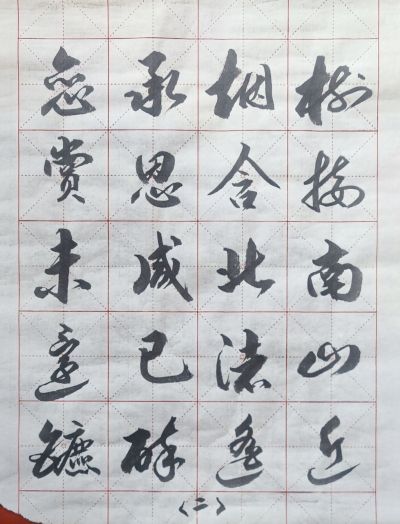 樹接南山近
烟含北渚遥
承恩咸已醉
恋賞未還鑣
(二)